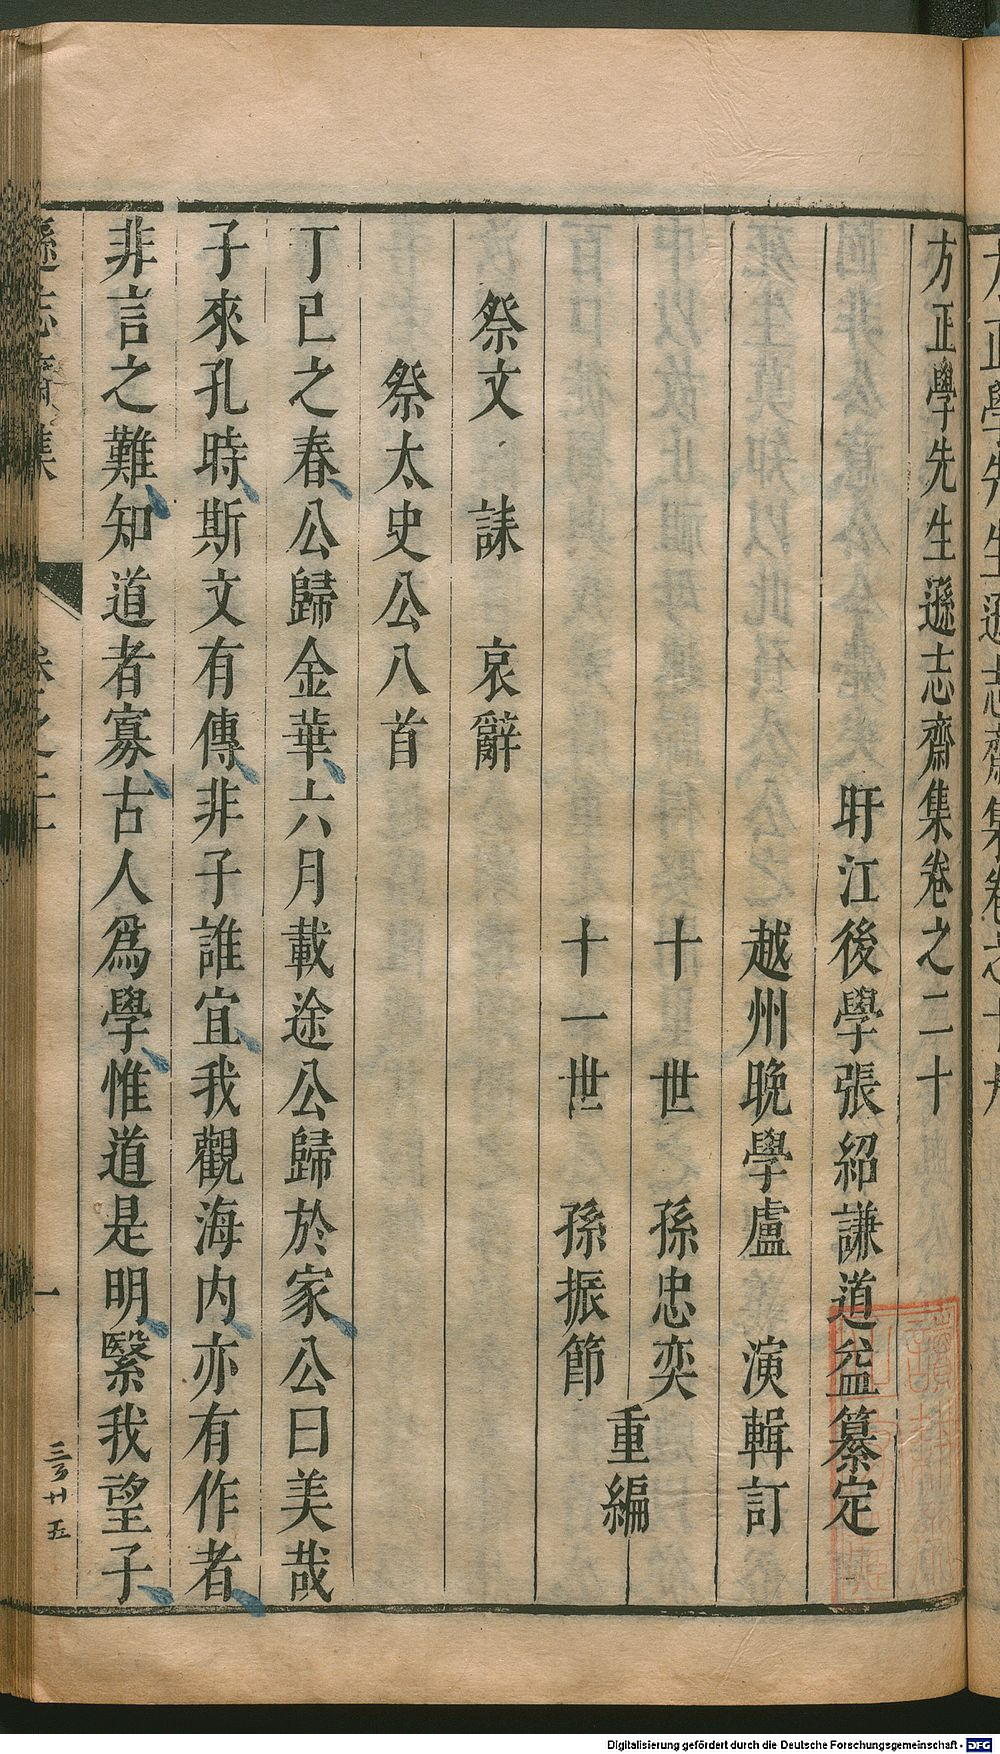 方正學先生遜志齋集卷之二十
盱江後學張紹謙道益纂定
越州晚學盧 演輯訂
十 世 孫忠奕
十一世 孫振節
重編
祭文 誄 哀辭
祭太史公八首
丁巳之春公歸金華六月載途公歸於家公曰美哉
子來孔時斯文有傳非子誰宜我觀海內亦有作者
非言之難知道者寡古人為學惟道是明繄我望子
遜志齋集 卷之二十 一
三百廿五
Digitalisierung gefördert durch die Deutsche Forschungsgemeinschaft - DFG